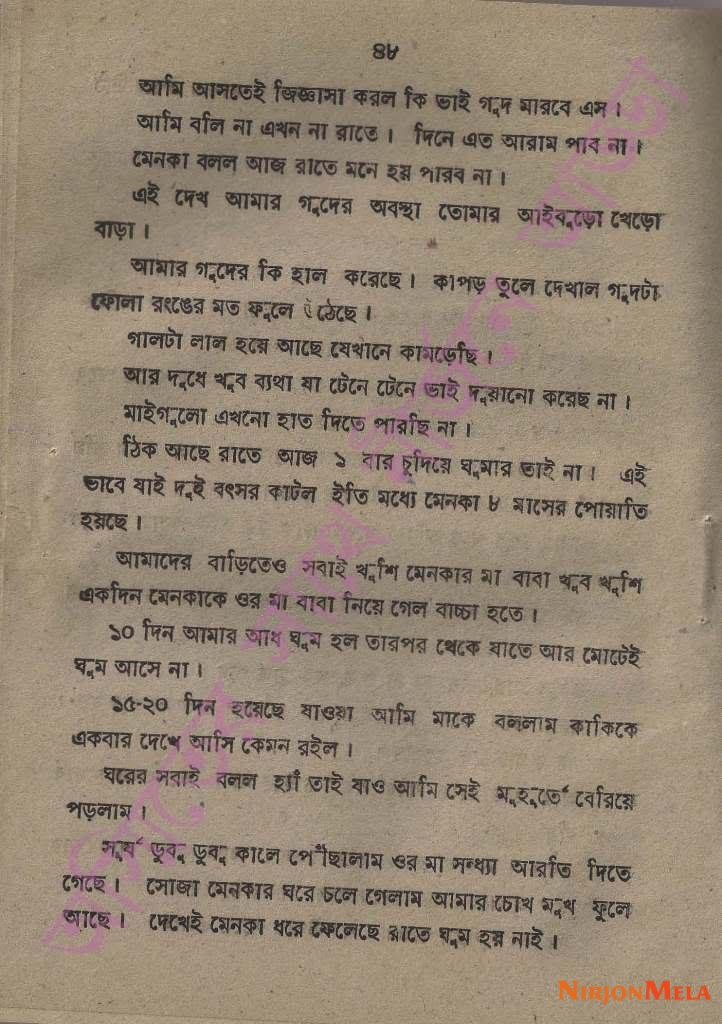 ৪৮
আমি আসতেই জিজ্ঞাসা করল কি ভাই গুদ মারবে এস।
আমি বলি না এখন না রাতে। দিনে এত আরাম পাব না।
মেনকা বলল আজ রাতে মনে হয় পারব না।
এই দেখ আমার গুদের অবস্থা তোমার আইবুড়ো খেড়ো
বাড়া।
আমার গুদের কি হাল করেছে। কাপড় তুলে দেখাল গুদটা
ফোলা রংঙের মত ফুলে উঠেছে।
গালটা লাল হয়ে আছে যেখানে কামড়েছি।
আর দুধে খুব ব্যথা যা টেনে টেনে ভাই দুয়ানো করেছ না।
মাইগুলো এখনো হাত দিতে পারছি না।
ঠিক আছে রাতে আজ ১ বার চুদিয়ে ঘুমার ভাই না। এই
ভাবে যাই দুই বৎসর কাটল ইতি মধ্যে মেনকা ৮ মাসের পোয়াতি
হয়ছে।
আমাদের বাড়িতেও সবাই খুশি মেনকার মা বাবা খুব খুশি
একদিন মেনকাকে ওর মা বাবা নিয়ে গেল বাচ্চা হতে।
১০ দিন আমার আধ ঘুম হল তারপর থেকে যাতে আর মোটেই
ঘুম আসে না।
১৫-২০ দিন হয়েছে যাওয়া আমি মাকে বললাম কাকিকে
একবার দেখে আসি কেমন রইল।
ঘরের সবাই বলল হ্যাঁ তাই যাও আমি সেই মুহূর্তে বেরিয়ে
পড়লাম।
সূর্য ডুবু ডুবু কালে পৌঁছালাম ওর মা সন্ধ্যা আরতি দিতে
গেছে। সোজা মেনকার ঘরে চলে গেলাম আমার চোখ মুখ ফুলে
আছে। দেখেই মেনকা ধরে ফেলেছে রাতে ঘুম হয় নাই।
NIRJONMELA